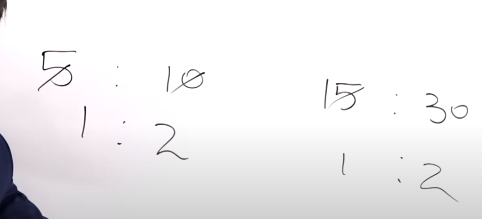 5 : 10
1 : 2
15 : 30
1 : 2